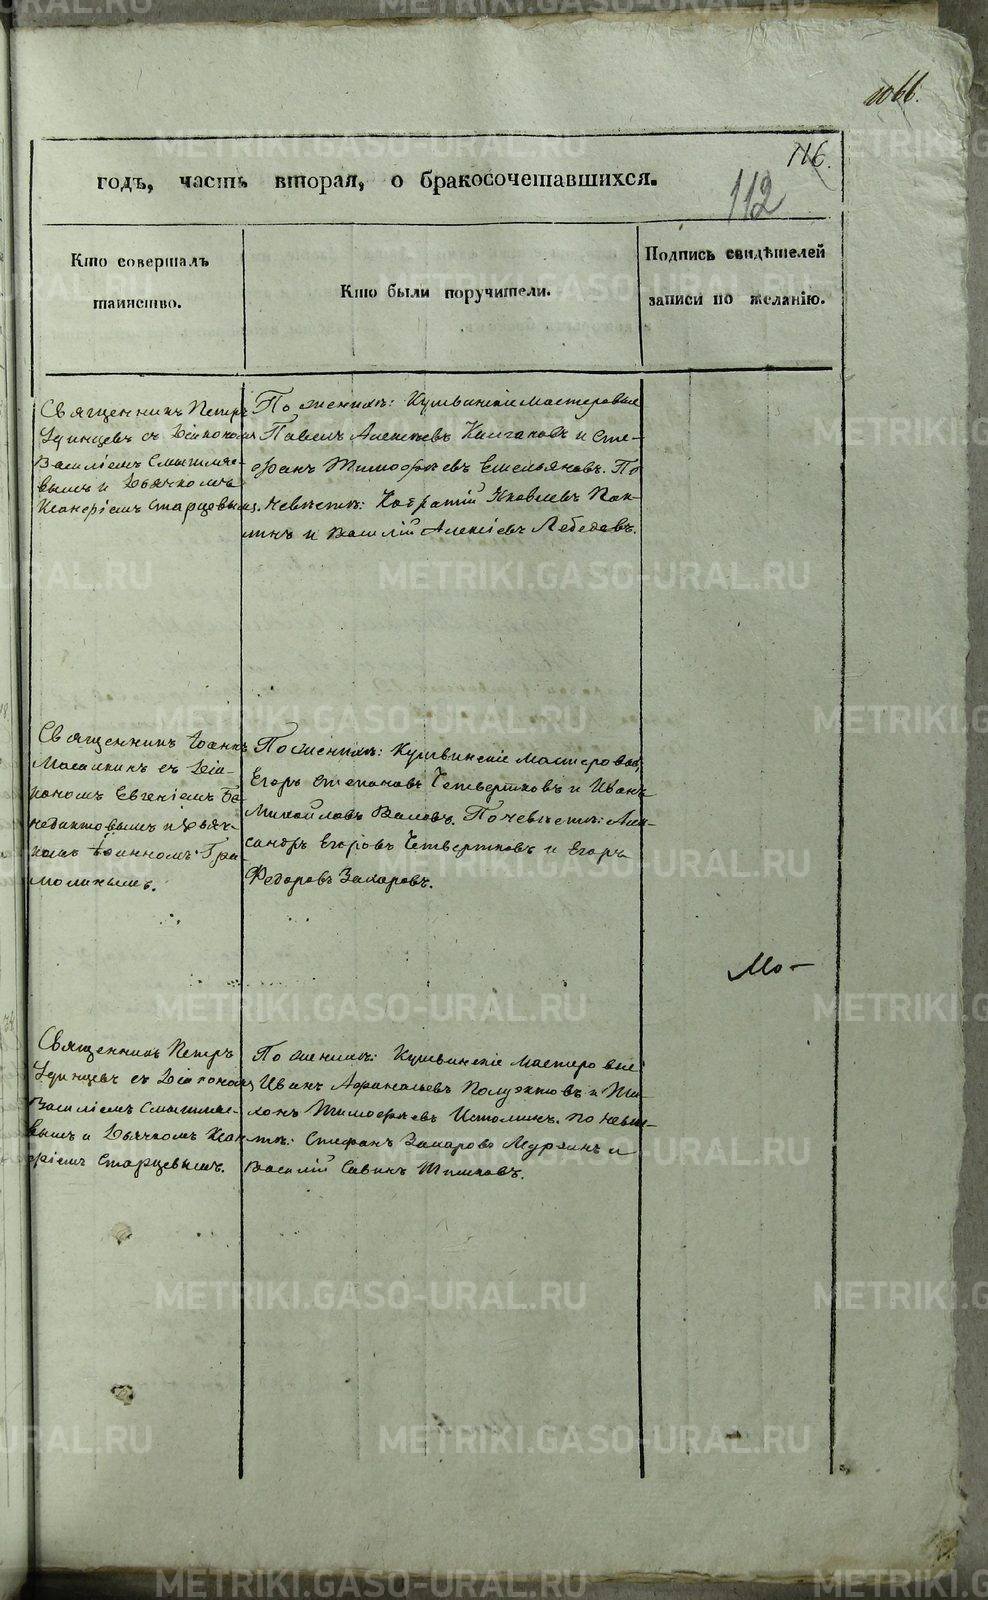 1066.
116.
112
годъ, часть вторая, о бракосочетавшихся.
Кто совершалъ
таинство.
Кто были поручители.
Подпись свидѣтелей
записи по желанію.
Священникъ Петръ
Удинцевъ съ Діакономъ
Василіемъ Смышляе-
вымъ и Дьячкомъ
Старцевымъ.
По женихѣ: Кушвинскіе мастеровые
Павелъ Алексѣевъ Калгановъ и Сте-
фанъ Тимофѣевъ Емельяновъ. По
невѣстѣ: Яковлевъ
и Василій Алексіевъ Лебедевъ.
Священникъ Іоаннъ
съ Діа-
кономъ Евгеніемъ Бе-
недиктовымъ и Дьяч-
комъ Іоанномъ Гра-
молинымъ.
По женихѣ: Кушвинскіе мастеровые
Егоръ Степановъ Четвертковъ и Иванъ
Михайловъ Валовъ. По невѣстѣ: Алек-
сандръ Егоровъ Четвертковъ и Егоръ
Федоровъ Захаровъ.
Мо-
Священникъ Петръ
Удинцевъ съ Діакономъ
Василіемъ Смышляе-
вымъ и Дьячкомъ
Старцевымъ.
По женихѣ: Кушвинскіе мастеровые
Иванъ Афанасьевъ Полуэктовъ и Ти-
хонъ Тимофѣевъ Истоминъ. По невѣс-
тѣ: Стефанъ Захаровъ Мурзинъ и
Василій Савинъ
METRIKI.GASO-URAL.RU